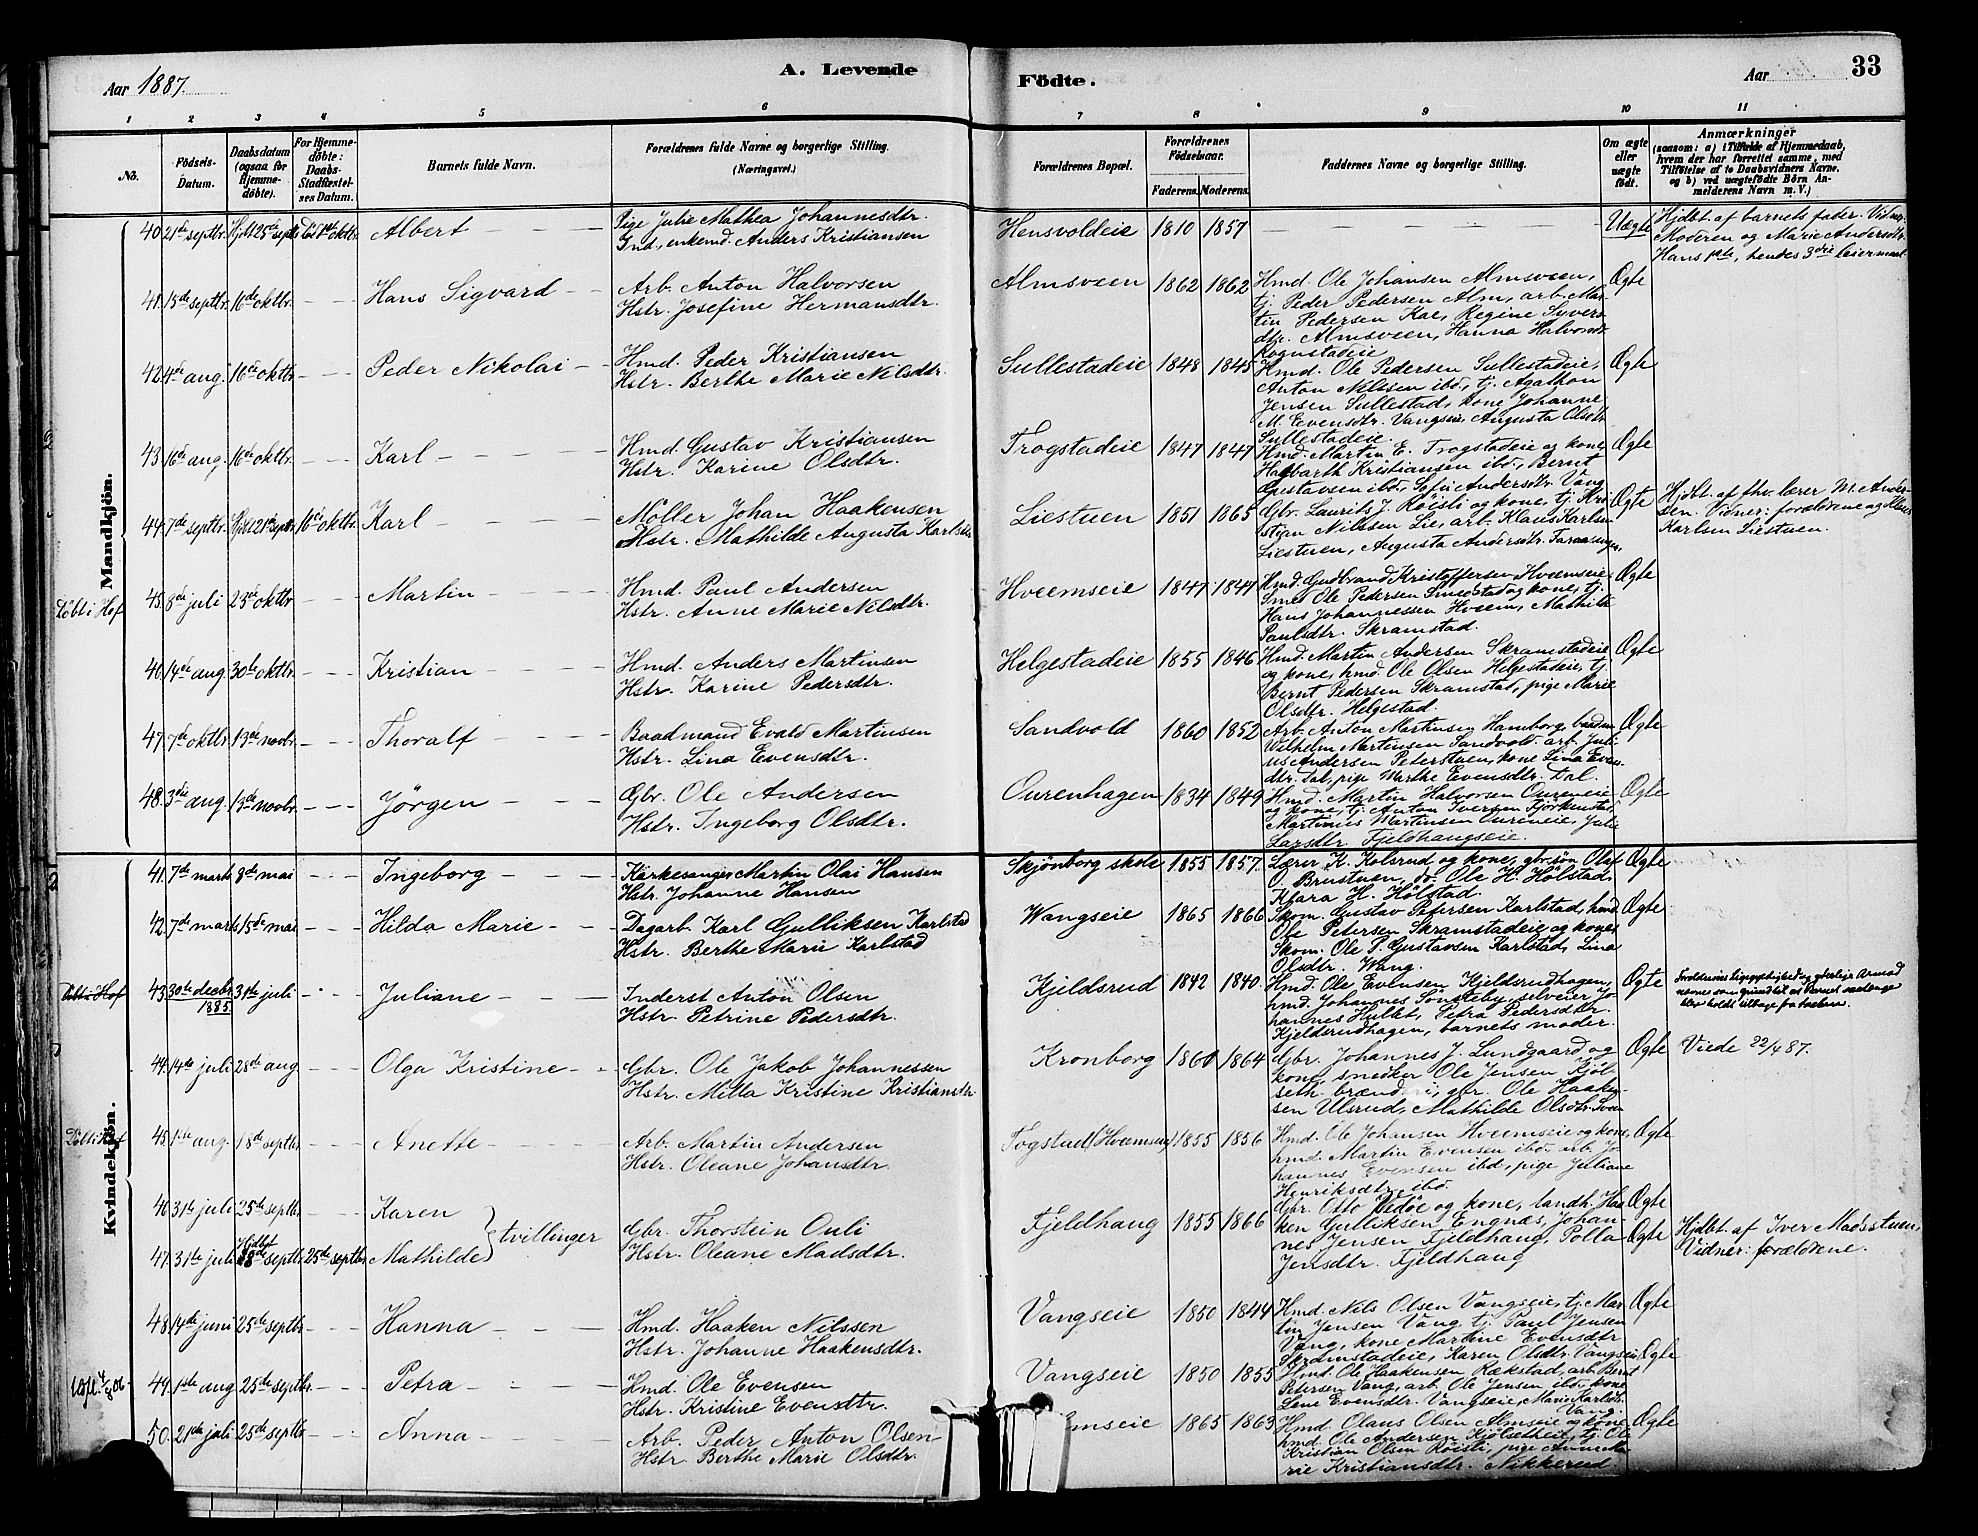 Aar 1887.
A. Levende
Födte.
Aar
33
1 2 3 4 5 6 7 8 9 10 11
No.
Födsels-Datum.
Daabsdatum (ogsaa for Hjemmedöbte).
For Hjemmedöbte: Daabs-Stadfæstelses Datum.
Barnets fulde Navn.
Forældrenes fulde Navne og borgerlige Stilling.
(Næringsvei.)
Forældrenes Bopæl.
Forældrenes Födselsaar.
Faderens. Moderens.
Faddernes Navne og borgerlige Stilling.
Om ægte eller uægte födt.
Anmærkninger
(saasom: a) i Tilfælde af Hjemmedaab, hvem der har forrettet samme, med Tilföielse af to Daabsvidners Navne. og b) ved uægtefödte Börn Anmelderens Navn m. V.)
Mandkjön.
40. 21de septbr. Hjdt 25de septbr. 1ste oktbr. Albert Pige Julie Mathea Johannesdtr. Hensvoldeie 1810 1857 Uægte Hjdbt. af barnets fader. Vidner:
Ind., enkemd. Anders Kristiansen
Moderen og Marie Andersdtr.
Hans 1ste, hendes 3die leiermaal.
41. 15de septbr. 16de oktbr. Hans Sigvard Arb. Anton Halvorsen Almsveen 1862 1862 Hmd. Ole Johansen Almsveen, Ægte
Hstr. Josefine Hermansdtr.
tj. Peder Pedersen Alm, arb. Mar-
tin Pedersen Kae, Regine Syvers
dtr. Almsveen, Hanna Halvorsdtr.
Rognstadeie
42. 4de aug. 16de oktbr. Peder Nikolai Hmd. Peder Kristiansen Sullestadeie 1848 1845 Hmd. Ole Pedersen Sullestadeie, Ægte
Hstr. Berthe Marie Nilsdtr.
Anton Nilssen ibd., tj. Agathon
Jensen Sullestad, kone Johanne
M. Evensdtr. Vangseie, Augusta Olsdtr.
Sullestadeie.
43. 16de aug. 16de oktbr. Karl Hmd. Gustav Kristiansen Trogstadeie 1847 1847 Hmd. Martin E. Trogstadeie og kone, Ægte
Hstr. Karine Olsdtr.
Kristiansen ibd., Bernt
Gustavsen ibd., Sofie Andersdtr. Vang
44. 7de septbr. Hjdt 21de septbr. 16de oktbr. Karl Möller Johan Haakensen Liestuen 1851 1865 Gbr. Laurits J. Röisli og kone, tj. Kri- Ægte Hjdbt. af fhv. lærer M. Ander-
Hstr. Mathilde Augusta Karlsdtr.
stian Nilssen Lie, arb. Klaus Karlsen
Liestuen, Augusta Andersdtr.
sen. Vidner: forældrene og Klaus
Karlsen Liestuen.
Döbt i Hof
45. 8de juli 23de oktbr. Martin Hmd. Paul Andersen Hveemseie 1847 1847 Hmd. Gudbrand Kristoffersen Hveemseie, Ægte
Hstr. Anne Marie Nilsdtr.
Smed Ole Pedersen og kone, tj.
Hans Johannessen Hveem, Mathilde
Paulsdtr. Skramstad.
46. 14de aug. 30te oktbr. Kristian Hmd. Anders Martinsen Helgestadeie 1855 1846 Hmd. Martin Andersen Skramstadeie Ægte
Hstr. Karine Pedersdtr.
og kone, hmd. Ole Olsen Helgestadeie, tj.
Bernt Pedersen Skramstad, pige Marie
Olsdtr. Helgestad.
47. 7de oktbr. 13de novbr. Thoralf Baadmand Evald Martinsen Sandvold 1860 1852 Arb. Anton Martinsen Hamborg, baadm. Ægte
Hstr. Lina Evensdtr.
Wilhelm Martinsen Sandvold, arb. Juli
us Andersen Peterstuen, kone Lina Even-
dtr. Dal, pige Marthe Evensdtr. Dal.
48. 3die aug. 13de novbr. Jörgen Gbr. Ole Andersen Ourenhagen 1834 1849 Hmd. Martin Halvorsen Oureneie Ægte
Hstr. Ingeborg Olsdtr.
og kone, tj. Anton Iversen Fjörkenstad,
Martinus Martinsen Oureneie, Julie
Larsdtr. Fjeldhangseie.
Kvindekjön.
41. 7de marts 8de mai Ingeborg Kirkesanger Martin Olai Hansen Skjönborg skole 1855 1857. Lærer K. Kolsrud og kone, gbr.sön Olaf Ægte
Hstr. Johanne Hansen
O. Brustuen, do. Ole H. Hölstad,
Klara H. Hölstad.
42. 7de marts 15de mai Hilda Marie Dagarb. Karl Gulliksen Karlstad Wangseie 1865 1866 Skom. Gustav Petersen Karlstad, hmd. Ægte
Hstr. Berthe Marie Karlstad
Ole Petersen Skramstadeie og kone,
Skom. Ole P. Gustavsen Karlstad, Lina
Olsdtr. Wang.
Döbt i Hof
43. 30te decbr. 1885. 31te juli Juliane Inderst Anton Olsen Kjeldsrud 1842 1840 Hmd. Ole Evensen Kjeldsrudhagen, Ægte Forældrenes ligegyldighed og yderlige Armod
Hstr. Petrine Pedersdtr.
hmd. Johannes Sönsteby, selveier Jo-
hannes Hullet, Petra Pedersdtr.
Kjeldsrudhagen, barnets moder.
nævnes som grund til at Barnet saalænge
blev holdt tilbage fra Daaben.
44. 14de juli 28de aug. Olga Kristine Gbr. Ole Jakob Johannessen Kronborg 1860 1864 Gbr. Johannes J. Lundgaard og Ægte Viede 22/4 87.
Hstr. Milla Kristine Kristiansdtr.
kone, snedker Ole Jensen Kjöl-
seth brænderi, gbr. Ole Haaken-
sen Ulsrud, Mathilde Olsdtr.
Döbt i Hof
45. 1ste aug. 18de septbr. Anette Arb. Martin Andersen Togstad (Hveemseie) 1855 1856 Hmd. Ole Johansen Hveemseie og kone, Ægte
Hstr. Oleane Johansdtr.
hmd. Martin Evensen ibd., arb. Jo-
hannes Evensen ibd., pige Juliane
Henriksdtr. ibd.
46. 31te juli 25de septbr. Karen tvillinger Gbr. Thorstein Ouli Fjeldhang 1855 1866 Gbr. Otto Vedöe og kone, landh. Haa- Ægte
ken Gulliksen Engnæs, Johan-
47. 31te juli Hjdbt 18de septbr. 25de septbr. Mathilde Hstr. Oleane Madsdtr. nes Jensen Fjeldhang, Polla Ægte Hjdbt. af Iver Madsstuen,
Jensdtr. Fjeldhang
Vidner: forældrene.
48. 14de juni 25de septbr. Hanna Hmd. Haaken Nilssen Vangseie 1850 1844 Hmd. Nils Olsen Vangseie, tj. Mar- Ægte
Hstr. Johanne Haakensdtr.
tin Jensen Vang, tj. Paul Jensen
Vang, kone Martine Evensdtr.
Skramstadeie, Karen Olsdtr. Vangseie
4/8 06
49. 1ste aug. 25de septbr. Petra Hmd. Ole Evensen Vangseie 1850 1855 Hmd. Ole Haakensen Rækstad, arb. Bernt Ægte
Hstr. Kristine Evensdtr.
Petersen Vang, arb. Ole Jensen ibd., kone
Lene Evensdtr. Vangseie, Marie Karlsdtr.
Vang.
50. 21de juli 25de septbr. Anna Arb. Peder Anton Olsen mseie 1865 1863 Hmd. Olaus Olsen Almseie og kone, Ægte
Hstr. Berthe Marie Olsdtr.
hmd. Ole Andersen Kjölsetheie, tj. Ole
Kristian Olsen Röisli, pige Anne Ma-
rie Kristiansdtr. Nikkerud